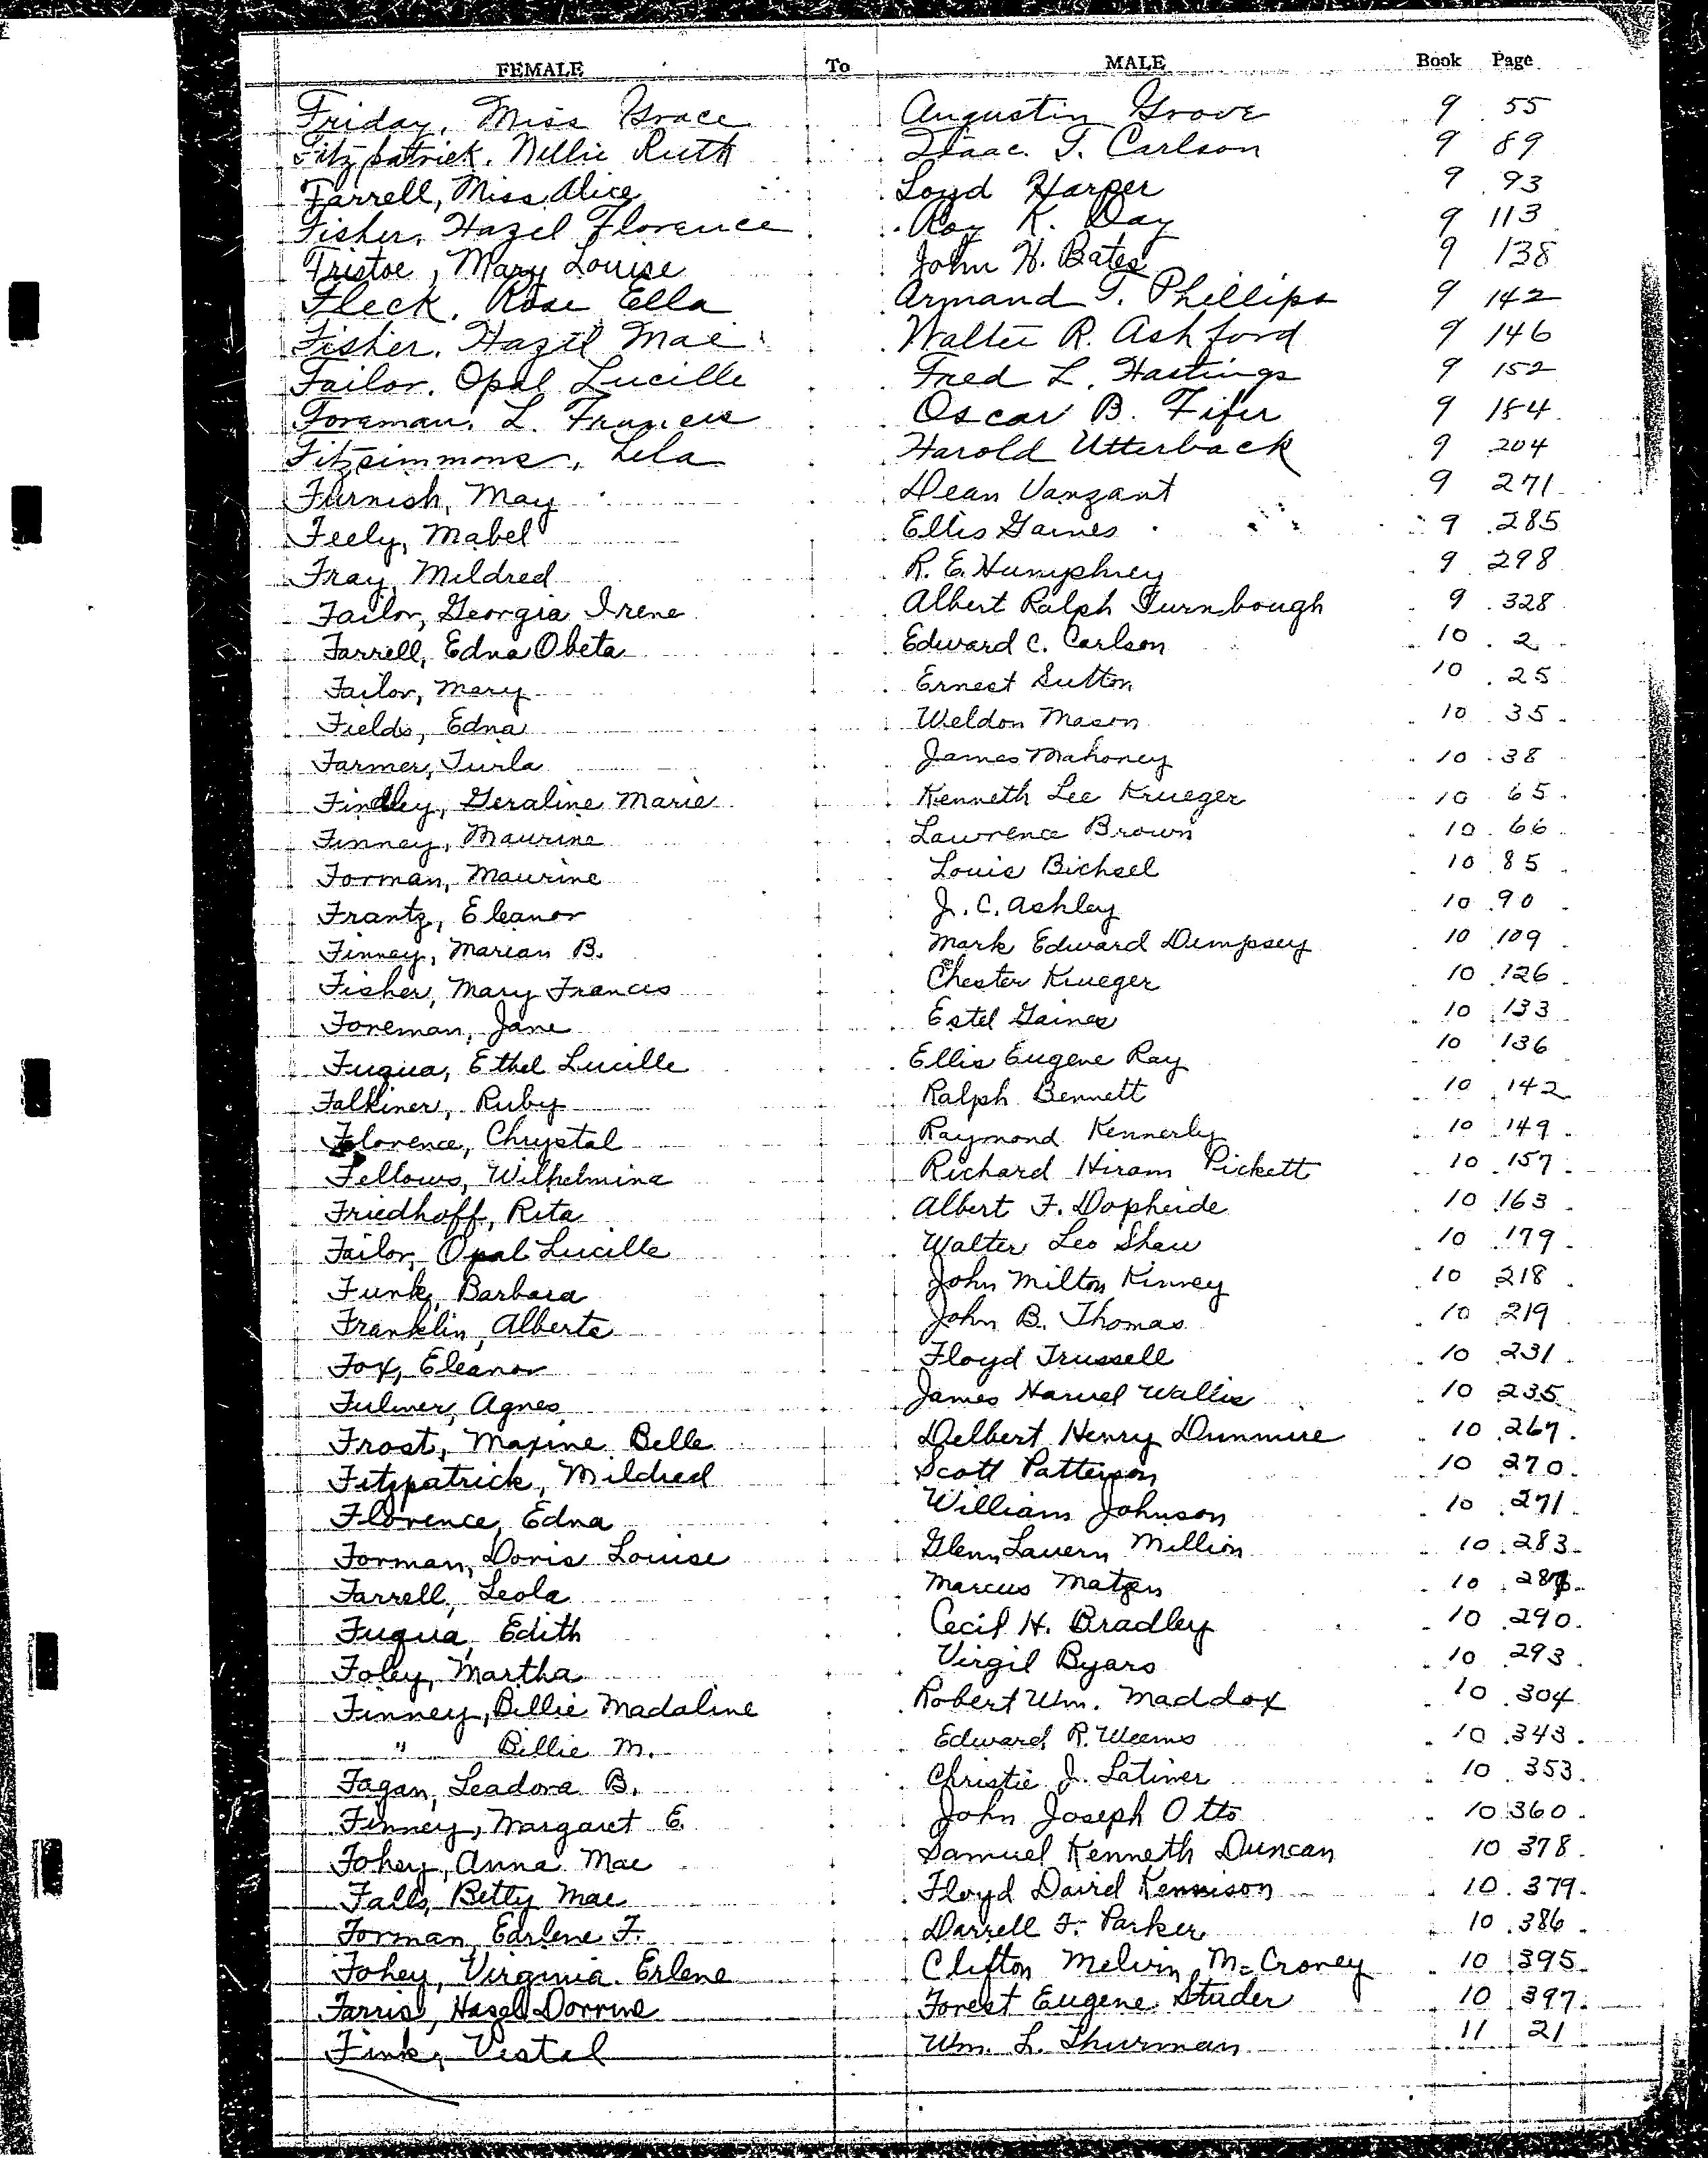 FEMALE To MALE Book Page
Friday, Miss Grace Augustin Grove 9 55
Fitzpatrick, Nellie Ruth Isaac T. Carlson 9 89
Farrell, Miss Alice Loyd Harper 9 93
Fisher, Hazel Florence Roy K. Day 9 113
Fristoe, Mary Louise John H. Bates 9 138
Fleck, Rose Ella Armand T. Phillips 9 142
Fisher, Hazel Mae Walter R. Ashford 9 146
Failor, Opal Lucille Fred L. Hastings 9 152
Foreman, L. Francis Oscar B. Fifer 9 184
Fitzsimmons, Lela Harold Utterback 9 204
Furnish, May Dean Vanzant 9 271
Feely, Mabel Ellis Gaines 9 285
Fray, Mildred R. E. Humphrey 9 298
Failor, Georgia Irene Albert Ralph Turnbough 9 328
Farrell, Edna Obeta Edward C. Carlson 10 2
Failor, Mary Ernest Sutton 10 25
Fields, Edna Weldon Mason 10 35
Farmer, Turla James Mahoney 10 38
Findley, Geraline Marie Kenneth Lee Krueger 10 65
Finney, Maurine Lawrence Brown 10 66
Forman, Maurine Louis Bichsel 10 85
Frantz, Eleanor J. C. Ashley 10 90
Finney, Marian B. Mark Edward Dempsey 10 109
Fisher, Mary Francis Chester Krueger 10 126
Foreman, Jane Estel Gaines 10 133
Fuqua, Ethel Lucille Ellis Eugene Ray 10 136
Falkiner, Ruby Ralph Bennett 10 142
Florence, Chrystal Raymond Kennerly 10 149
Fellows, Wilhelmina Richard Hiram Pickett 10 157
Friedhoff, Rita Albert F. Dopheide 10 163
Failor, Opal Lucille Walter Leo Shaw 10 179
Funk, Barbara John Milton Kinney 10 218
Franklin, Alberta John B. Thomas 10 219
Fox, Eleanor Floyd Trussell 10 231
Fulmer, Agnes James Harvel Wallis 10 235
Frost, Maxine Belle Delbert Henry Dunmire 10 267
Fitzpatrick, Mildred Scott Patterson 10 270
Florence, Edna William Johnson 10 271
Forman, Doris Louise Glenn Lavern Million 10 283
Farrell, Leola Marcus Matzen 10
Fuqua, Edith Cecil H. Bradley 10 290
Foley, Martha Virgil Byars 10 293
Finney, Billie Madaline Robert Wm. Maddox 10 304
" Billie M. Edward R. Weems 10 343
Fagan, Leadora B. Christie J. Latimer 10 353
Finney, Margaret E. John Joseph Otto 10 360
Fohey, Anna Mae Samuel Kenneth Duncan 10 378
Falls, Betty Mae Floyd David Kennison 10 379
Forman, Earlene F. Darrell F. Parker 10 386
Fohey, Virginia Erlene Clifton Melvin McCroney 10 395
Farris, Hazel Dorrine Forest Eugene Studer 10 397
Fink, Vestal Wm. L. Thurman 11 21